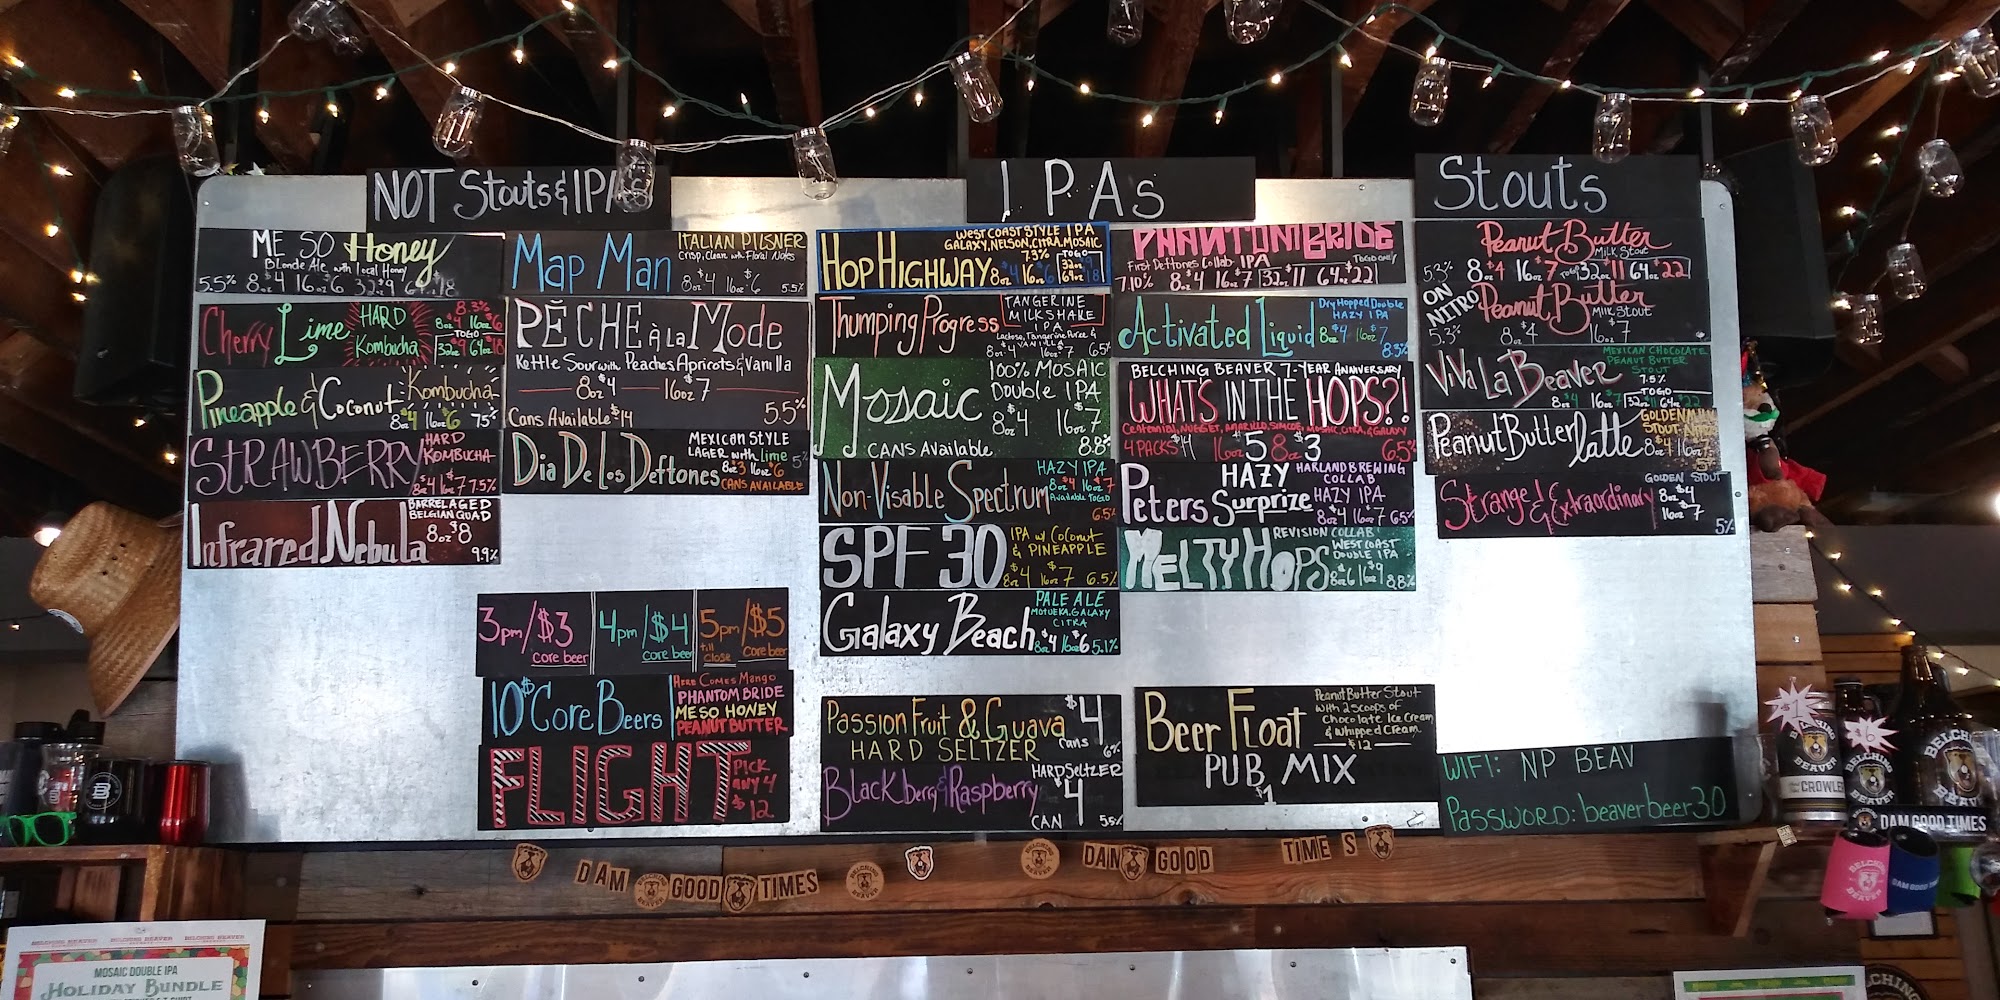 NOT Stouts & IPAs
ME SO Honey
Blonde Ale with Local Honey
5.5% 8oz $4 16oz $6 32oz $9 64oz $18
Cherry Lime
HARD
Kombucha
8.3%
8oz $4 16oz $6
TO GO
32oz $9 64oz $18
Pineapple & Coconut
Kombucha
8oz $4 16oz $6 7.5%
STRAWBERRY
HARD
KOMBUCHA
8oz $4 16oz $7 7.5%
Infrared Nebula
BARREL AGED
BELGIAN QUAD
8oz $8
9.9%
Map Man
ITALIAN PILSNER
Crisp, Clean with Floral Notes
8oz $4 16oz $6 5.5%
PĚCHE À la Mode
Kettle Sour with Peaches Apricots & Vanilla
8oz $4 16oz $7
Cans Available $14 5.5%
Dia De Los Deftones
MEXICAN STYLE
LAGER with Lime
8oz $3 16oz $6 5%
CANS AVAILABLE
3pm/$3
core beer
4pm/$4
core beer
5pm/$5
till close core beer
10oz Core Beers
HERE COMES MANGO
PHANTOM BRIDE
ME SO HONEY
PEANUT BUTTER
FLIGHT
PICK
ANY 4
$12
IPAs
HOP HIGHWAY
WEST COAST STYLE IPA
GALAXY, NELSON, CITRA, MOSAIC
7.3%
8oz $4 16oz $6
TO GO
32oz
64oz
Thumping Progress
TANGERINE
MILKSHAKE
IPA
Lactose, Tangerine Puree &
VANILLA
8oz $4 16oz $7 6.5%
Mosaic
100% MOSAIC
Double IPA
8oz $4 16oz $7
CANS Available 8.8%
Non-Visable Spectrum
HAZY IPA
8oz $4 16oz $7
Available TO GO
6.5%
SPF 30
IPA w/ Coconut
& PINEAPPLE
8oz $4 16oz $7 6.5%
Galaxy Beach
PALE ALE
MOTUEKA, GALAXY
CITRA
8oz $4 16oz $6 5.1%
PHANTOM BRIDE
First Deftones Collab IPA
TO GO ONLY
7.10% 8oz $4 16oz $7 32oz $11 64oz $22
Activated Liquid
Dry Hopped Double
HAZY IPA
8oz $4 16oz $7
8.3%
BELCHING BEAVER 7-YEAR ANNIVERSARY
WHAT'S IN THE HOPS?!
Centennial, NUGGET, AMARILLO, SIMCOE, MOSAIC, CITRA, & GALAXY
4 PACKS $14 16oz $5 8oz $3 6.5%
Peters HAZY Surprize
HARLAND BREWING
COLLAB
HAZY IPA
8oz $4 16oz $7 6.5%
MELTY HOPS
REVISION COLLAB
WEST COAST
DOUBLE IPA
8oz $6 16oz $9 8.8%
Passion Fruit & Guava
HARD SELTZER
$4
cans
6%
Blackberry & Raspberry
HARD SELTZER
$4
CAN 5.5%
Beer Float
Peanut Butter Stout
with 2 scoops of
Chocolate Ice Cream
& Whipped Cream
$12
PUB MIX
$1
Stouts
Peanut Butter
Milk Stout
5.3% 8oz $4 16oz $7 TO GO 32oz $11 64oz $22
ON
NITRO
Peanut Butter
Milk Stout
5.3% 8oz $4 16oz $7
Viva La Beaver
MEXICAN CHOCOLATE
PEANUT BUTTER
STOUT
7.5%
TO GO
8oz $4 16oz $7 32oz $11 64oz $22
Peanut Butter latte
GOLDEN MILK
STOUT
8oz $4 16oz
5%
Strange & Extraordinary
GOLDEN STOUT
8oz $4
16oz $7
5%
WIFI: NP BEAV
Password: beaverbeer30
DAM GOOD TIMES
DAM GOOD TIMES
BELCHING
BEAVER
CROWLER
$6
BELCHING
DAM GOOD TIMES
BELCHING BEAVER
DAM GOOD TIMES
MOSAIC DOUBLE IPA
HOLIDAY BUNDLE